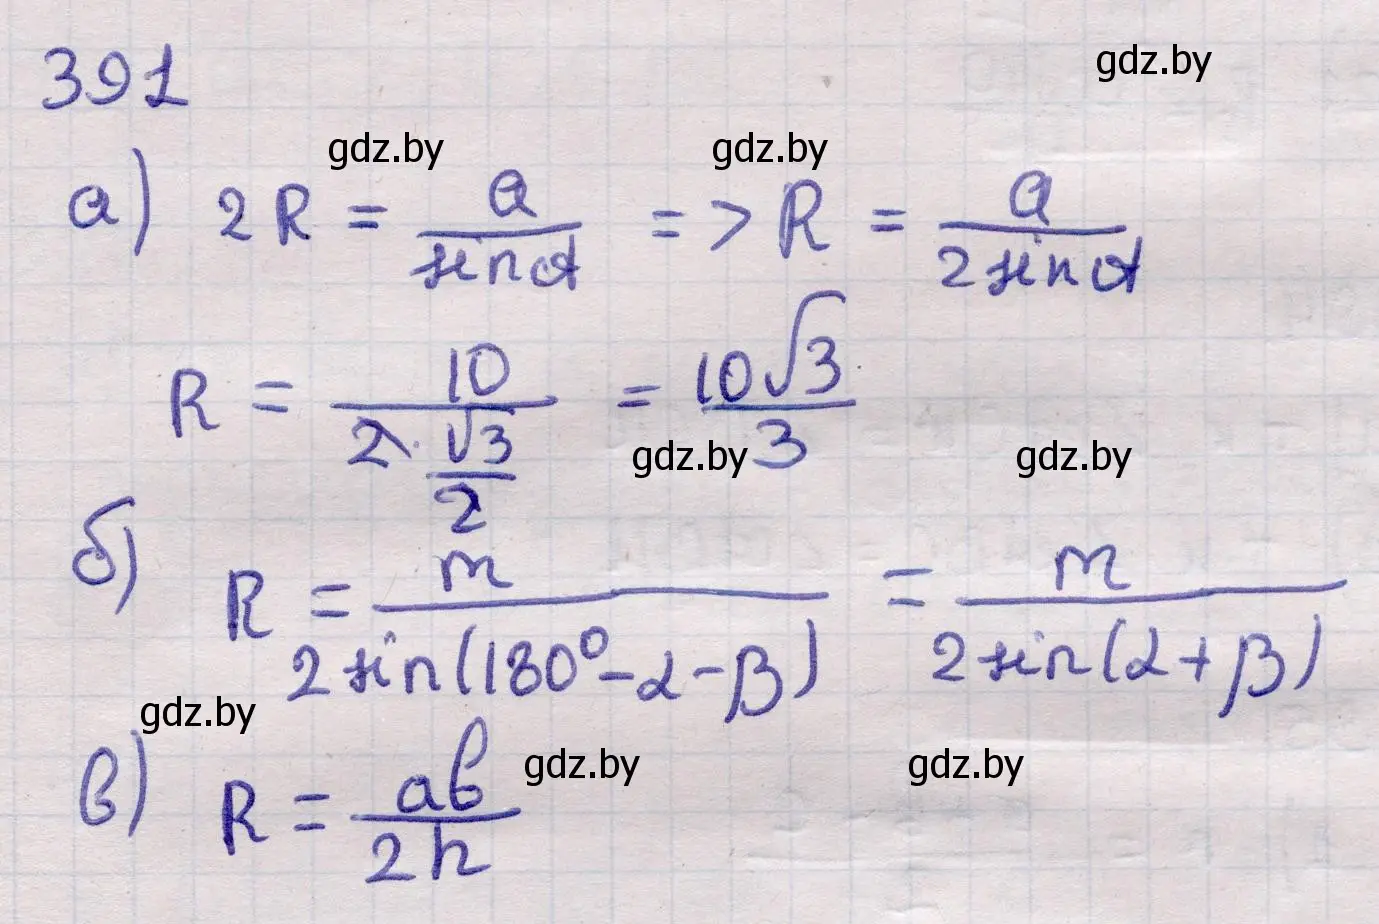 391
gdz.by
gdz.by gdz.by
а) 2R = a / sin α => R = a / 2 sin α
R = 10 / (2 · √3/2) = 10√3 / 3
gdz.by gdz.by
б) R = m / 2 sin(180° - α - β) = m / 2 sin(α + β)
gdz.by
gdz.by gdz.by
в) R = ab / 2h